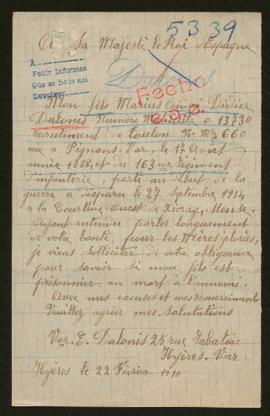 5339
A Sa Majesté le Roi d'Espagne
A
Pedir Informes
Devolver
Fecho
Mon fils Marius Didier
Dalonis Numéro Mle 13730
recrutement de Toulon No Mle 660
né à Pignans Var, le 17 Août
année 1886, du 163me Régiment
d'infanterie, parti au début de la
guerre a disparu le 27 septembre 1914
à la Tourbine Ouest de Meuse.
Ayant entendu parler longuement
de votre bonté pour les Mères
je viens solliciter de votre obligeance
pour savoir si mon fils est
prisonnier ou mort à l'ennemi.
Avec mes excuses et mes remerciements
Veuillez agréer mes salutations
Vve E. Dalonis 25 rue
Hyères. Var
Hyères le 22 Février